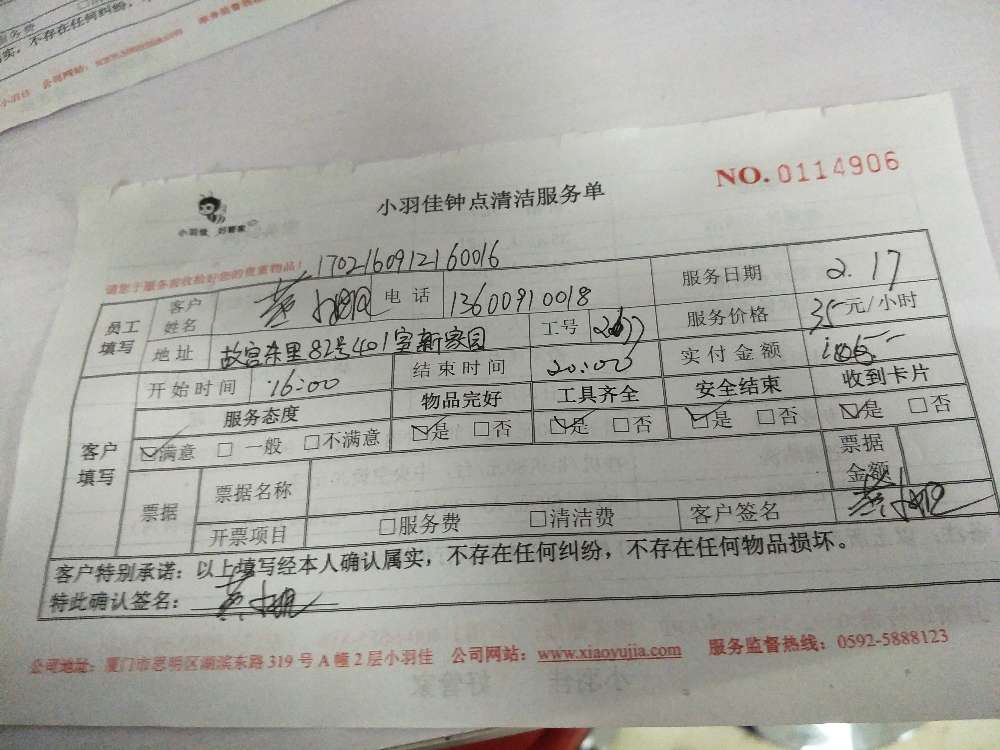 服务费
不存在任何纠纷，
小羽佳 公司网站：www.xiaoyujia.com
小羽佳钟点清洁服务单
NO.0114906
小羽佳 好管家
请您于服务前收捡好您的贵重物品！
1702160912160016
员工填写 客户姓名 电话 13600910018 服务日期 2.17
地址 故宫东里82号401室新家园 工号 服务价格 35元/小时
客户填写 开始时间 16:00 结束时间 20:00 实付金额
服务态度 物品完好 工具齐全 安全结束 收到卡片
☑满意 □一般 □不满意 ☑是 □否 ☑是 □否 ☑是 □否 ☑是 □否
票据 票据名称 票据金额
开票项目 □服务费 □清洁费 客户签名
客户特别承诺：以上填写经本人确认属实，不存在任何纠纷，不存在任何物品损坏。
特此确认签名：
公司地址：厦门市思明区湖滨东路319号A幢2层小羽佳 公司网站：www.xiaoyujia.com 服务监督热线：0592-5888123